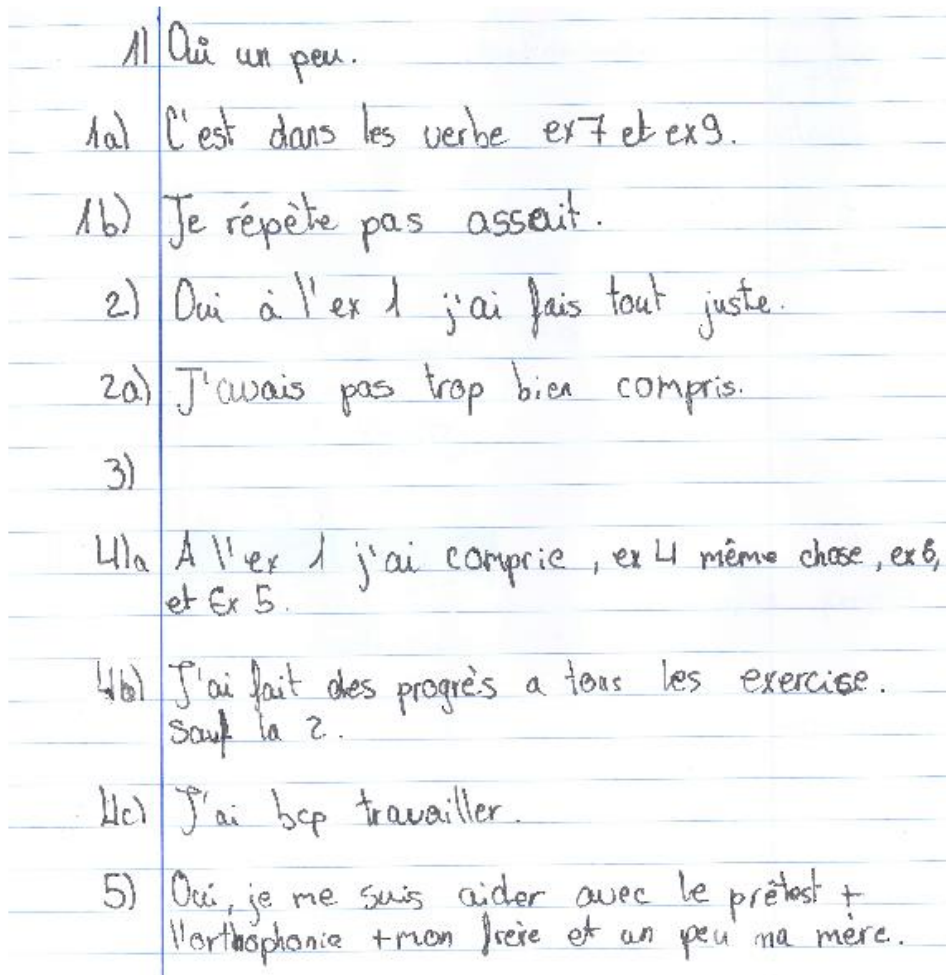 1) Oui un peu.
1a) C'est dans les verbe ex7 et ex9.
1b) Je répète pas assait.
2) Oui à l'ex 1 j'ai fais tout juste.
2a) J'avais pas trop bien compris.
3)
4)a A l'ex 1 j'ai comprie, ex 4 même chose, ex 6,
et Ex 5.
4b) J'ai fait des progrès a tous les exercise.
Sauf la 2.
4c) J'ai bcp travailler.
5) Oui, je me suis aider avec le prêtest +
l'orthophonie + mon frère et un peu ma mère.